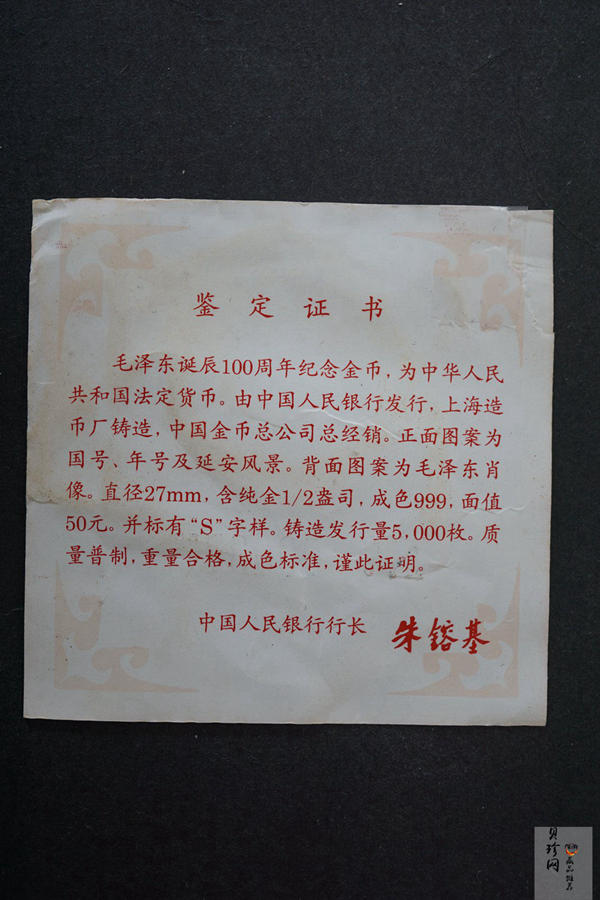 鉴定证书
毛泽东诞辰100周年纪念金币，为中华人民
共和国法定货币。由中国人民银行发行，上海造
币厂铸造，中国金币总公司总经销。正面图案为
国号、年号及延安风景。背面图案为毛泽东肖
像。直径27mm，含纯金1/2盎司，成色999，面值
50元。并标有“S”字样。铸造发行量5,000枚。质
量普制，重量合格，成色标准，谨此证明。
中国人民银行行长 朱镕基
贝珍网
藏品推荐